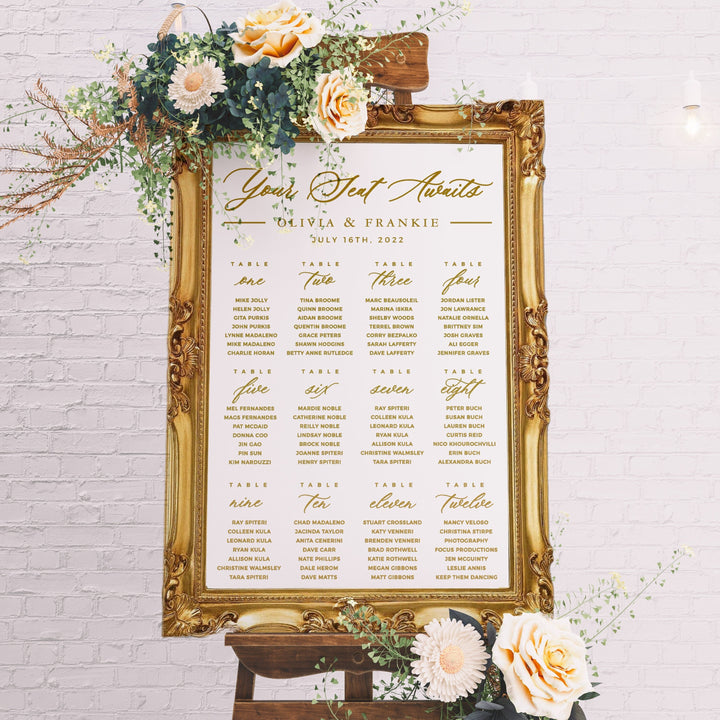 Your Seat Awaits
OLIVIA & FRANKIE
JULY 16TH, 2022
TABLE
one
MIKE JOLLY
HELEN JOLLY
GITA PURKIS
JOHN PURKIS
LYNNE MADALENO
MIKE MADALENO
CHARLIE HORAN
TABLE
two
TINA BROOME
QUINN BROOME
AIDAN BROOME
QUENTIN BROOME
GRACE PETERS
SHAWN HODGINS
BETTY ANNE RUTLEDGE
TABLE
three
MARC BEAUSOLEIL
MARINA ISKRA
SHELBY WOODS
TERREL BROWN
CORRY BEZPALKO
SARAH LAFFERTY
DAVE LAFFERTY
TABLE
four
JORDAN LISTER
JON LAWRANCE
NATALIE ORNELLA
BRITTNEY SIM
JOSH GRAVES
ALI EGGER
JENNIFER GRAVES
TABLE
five
MEL FERNANDES
MAGS FERNANDES
PAT MCDAID
DONNA COO
JIN GAO
PIN SUN
KIM NARDUZZI
TABLE
six
MARDIE NOBLE
CATHERINE NOBLE
REILLY NOBLE
LINDSAY NOBLE
BROCK NOBLE
JOANNE SPITERI
HENRY SPITERI
TABLE
seven
RAY SPITERI
COLLEEN KULA
LEONARD KULA
RYAN KULA
ALLISON KULA
CHRISTINE WALMSLEY
TARA SPITERI
TABLE
eight
PETER BUCH
SUSAN BUCH
LAUREN BUCH
CURTIS REID
NICO KHOUROCHVILLI
ERIN BUCH
ALEXANDRA BUCH
TABLE
nine
RAY SPITERI
COLLEEN KULA
LEONARD KULA
RYAN KULA
ALLISON KULA
CHRISTINE WALMSLEY
TARA SPITERI
TABLE
Ten
CHAD MADALENO
JACINDA TAYLOR
ANITA CENERINI
DAVE CARR
NATE PHILLIPS
DALE HEROM
DAVE MATTS
TABLE
eleven
STUART CROSSLAND
KATY VENNERI
BRENDEN VENNERI
BRAD ROTHWELL
KATIE ROTHWELL
MEGAN GIBBONS
MATT GIBBONS
TABLE
Twelve
NANCY VELOSO
CHRISTINA STIRPE
PHOTOGRAPHY
FOCUS PRODUCTIONS
JEN MCGUINTY
LESLIE ANNIS
KEEP THEM DANCING